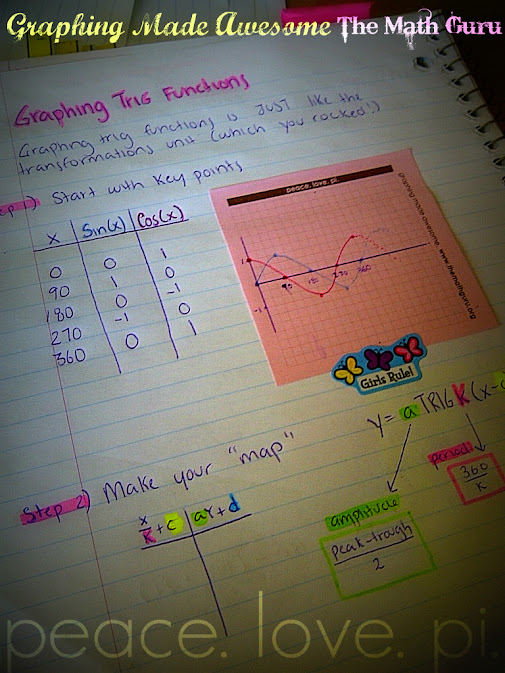 Graphing Made Awesome The Math Guru
Graphing Trig Functions
Graphing trig functions is JUST like the
transformations unit (which you rocked!)
ep 1) Start with Key points
x Sin(x) Cos(x)
0 0 1
90 1 0
180 0 -1
270 -1 0
360 0 1
peace. love. pi.
graphing made awesome. www.themathguru.org
1
90 180 270 360
-1
Girls Rule!
y= a TRIG K(x-c
Step 2) Make your "map"
x/K + c ay+d
amplitude
peak-trough
2
period
360
K
peace. love. pi.